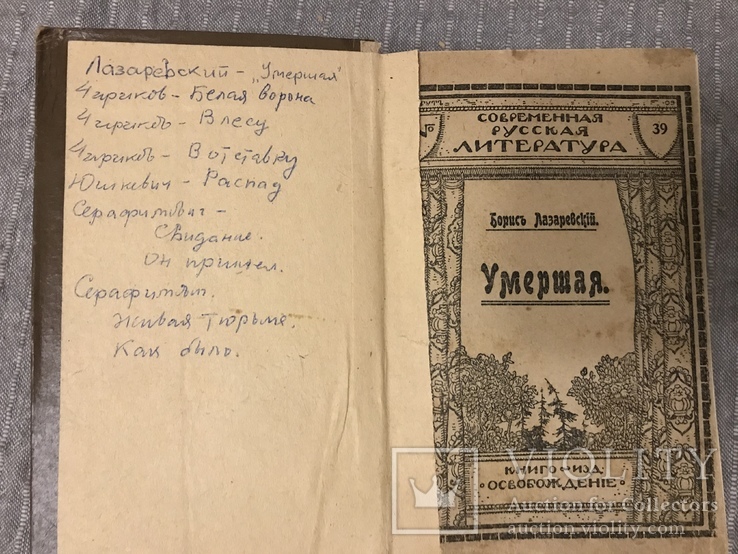 Лазаревский - „Умершая"
Чириков - Белая ворона
Чириков - В лесу
Чириков - В отставку
Юшкевич - Распад
Серафимович -
Свидание.
Он пришел.
Серафимович.
Живая тюрьма.
Как было.
№
СОВРЕМЕННАЯ
РУССКАЯ
ЛИТЕРАТУРА
39
Борисъ Лазаревскій.
Умершая.
КНИГО-ИЗД.
ОСВОБОЖДЕНІЕ
VIOLITY
Auction for Collectors
auction.violity.com